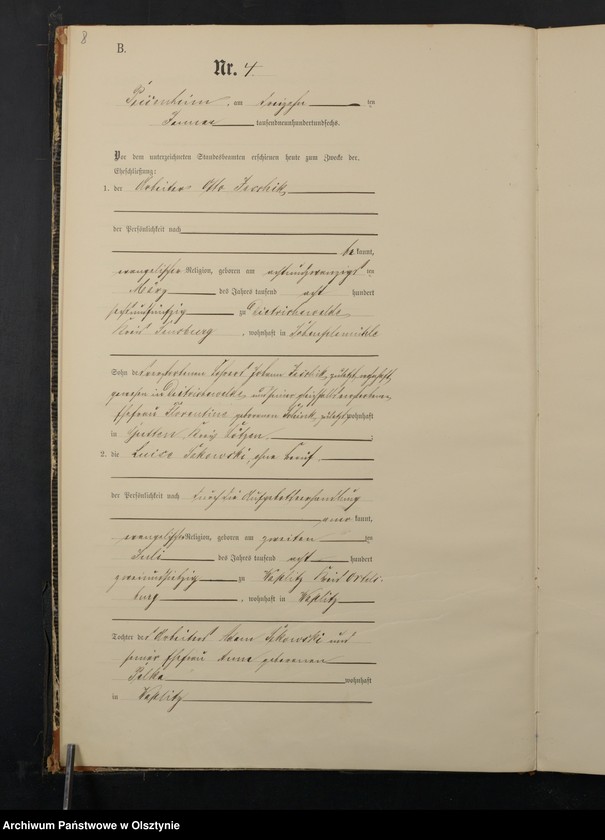 8
B.
Nr. 4
am dreizehn ten
Januar tausendneunhundertundsechs.
Vor dem unterzeichneten Standesbeamten erschienen heute zum Zwecke der
Eheschließung:
1. der Arbeiter Otto
der Persönlichkeit nach
be kannt,
evangelischer Religion, geboren am achtundzwanzigsten ten
März des Jahrs tausend acht hundert
zu Dietrichswalde
Kreis Sensburg, wohnhaft in
Sohn des verstorbenen Johann zuletzt wohnhaft
gewesen in Dietrichswalde und seiner gleichfalls verstorbenen
Ehefrau Florentine geborenen zuletzt wohnhaft
in Kreis Lötzen
2. die Luise ohne Beruf
der Persönlichkeit nach durch die Aufgebotsverhandlung
aner kannt,
evangelischer Religion, geboren am zweiten ten
Juli des Jahrs tausend acht hundert
zweiundsiebzig zu Waplitz Kreis Ortels-
burg, wohnhaft in Waplitz
Tochter des Arbeiters Adam und
seiner Ehefrau Anna geborenen
wohnhaft
in Waplitz
Archiwum Państwowe w Olsztynie